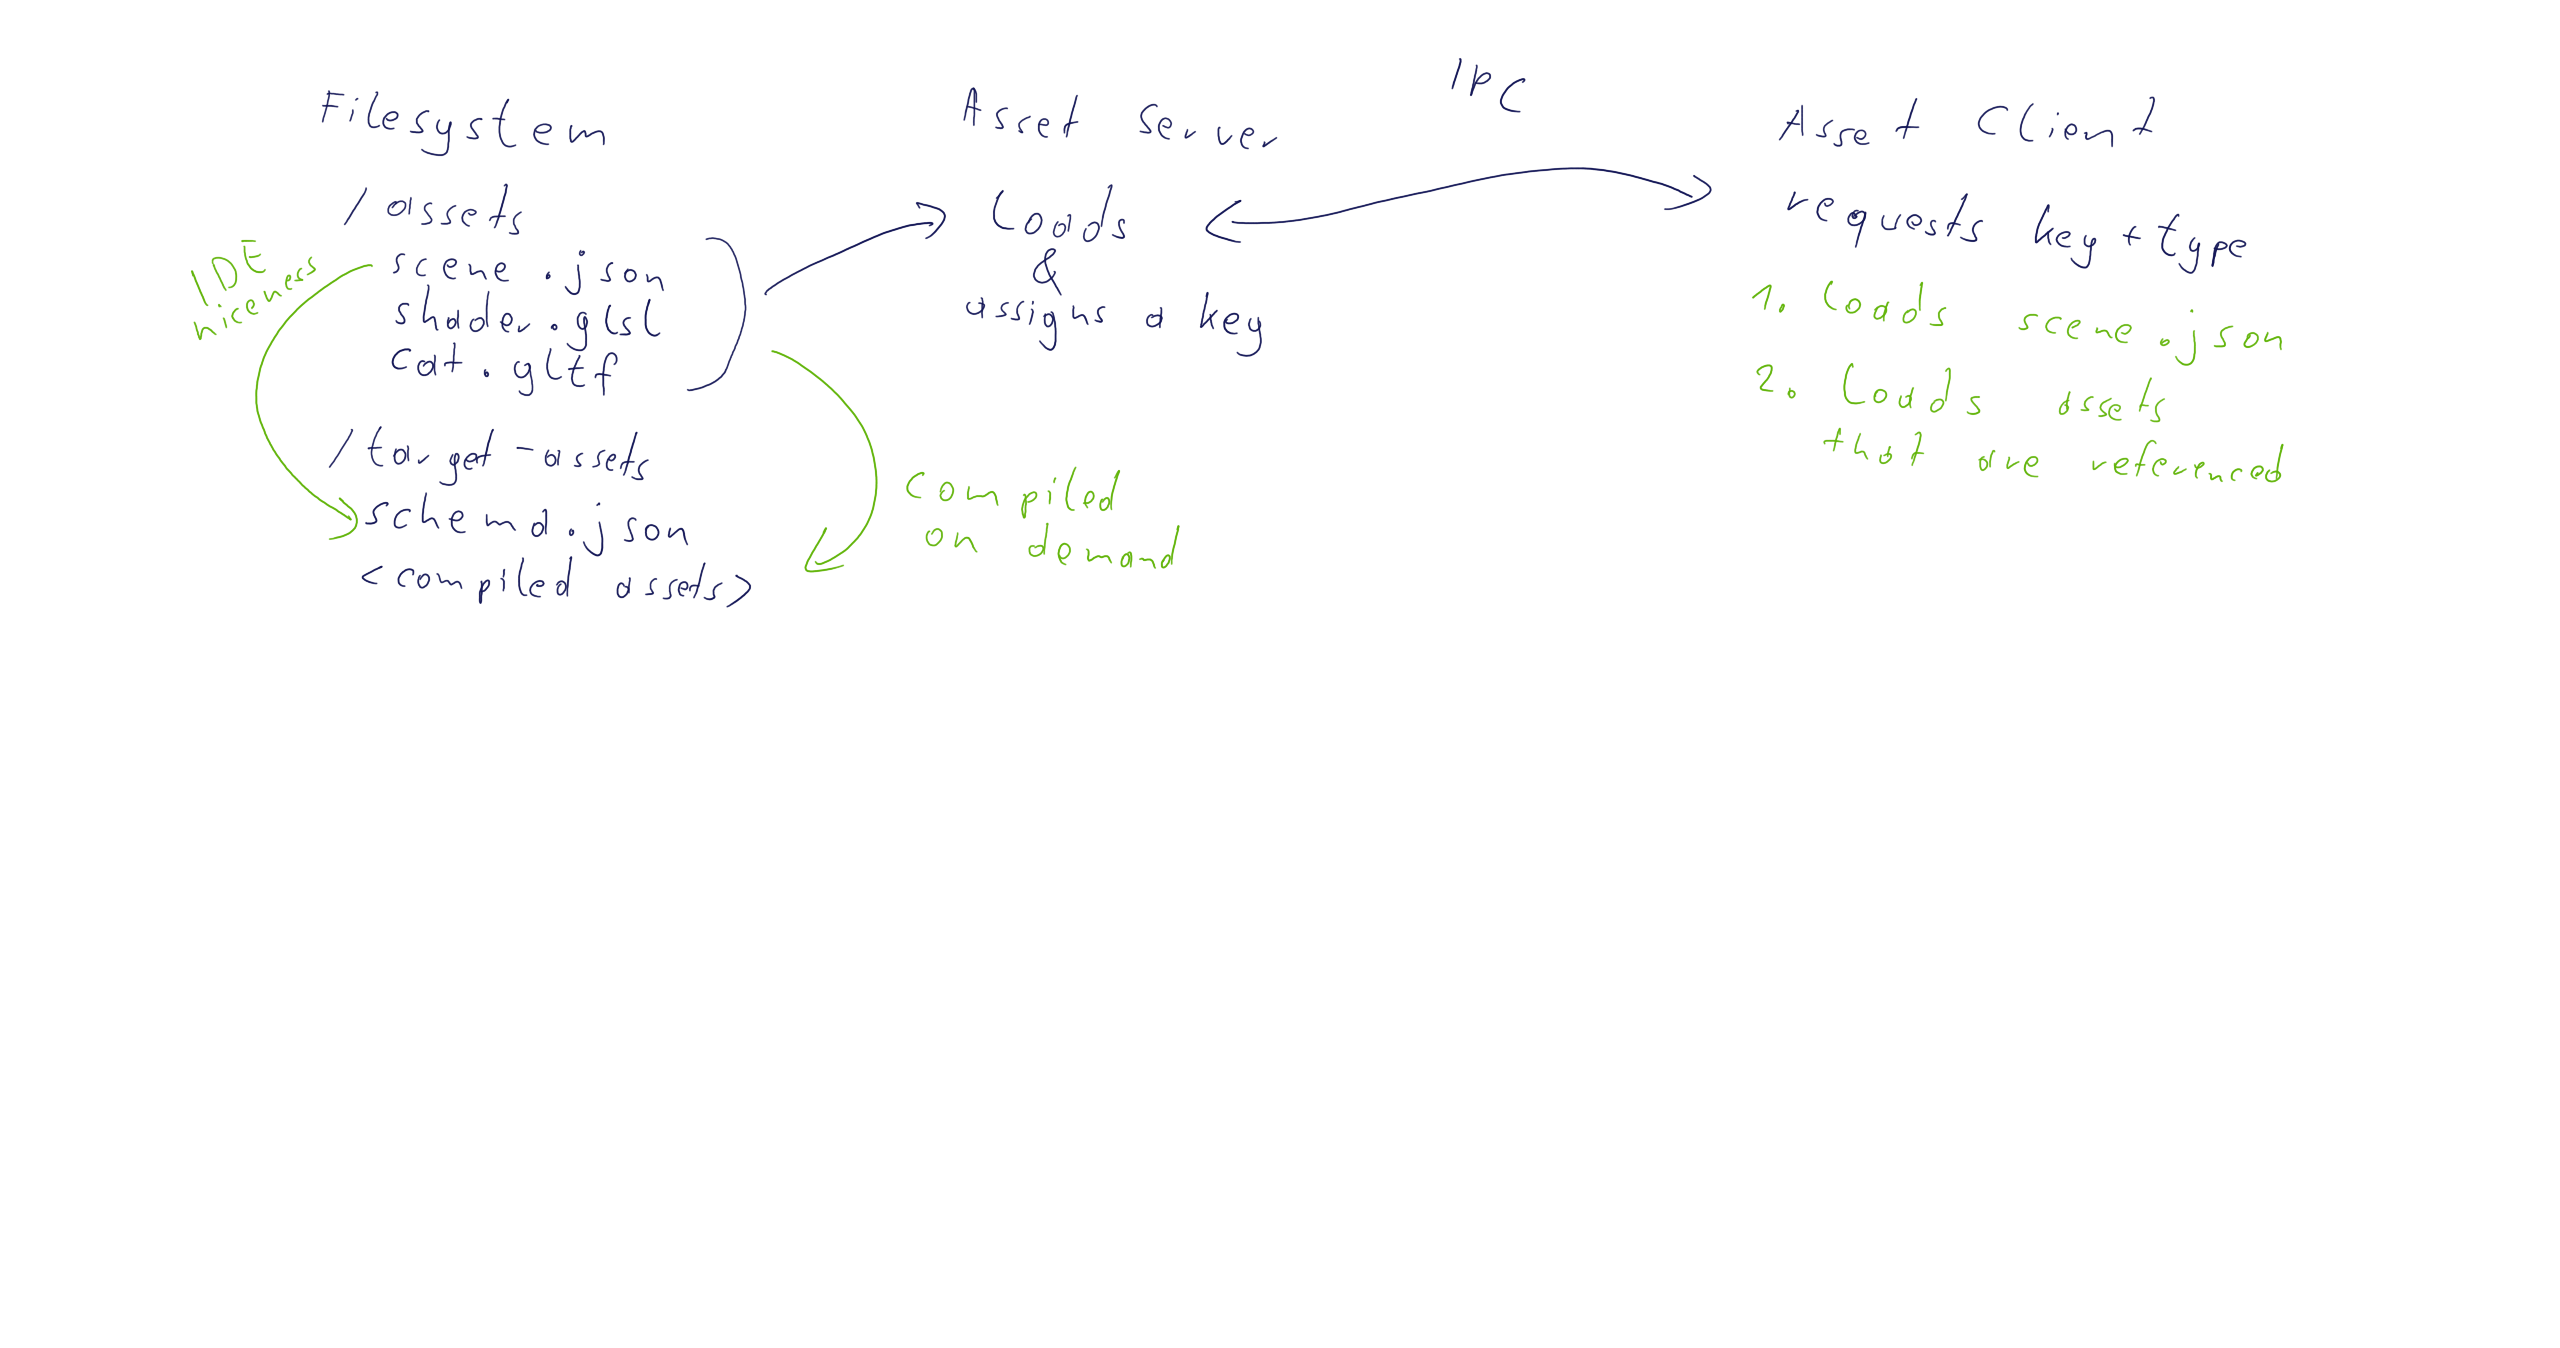 Filesystem
/assets
scene.json
shader.glsl
cat.gltf
/target-assets
schema.json
<compiled assets>
IDE
niceness
Asset Server
Loads
&
assigns a key
compiled
on demand
IPC
Asset Client
requests key + type
1. Loads scene.json
2. Loads assets
that are referenced